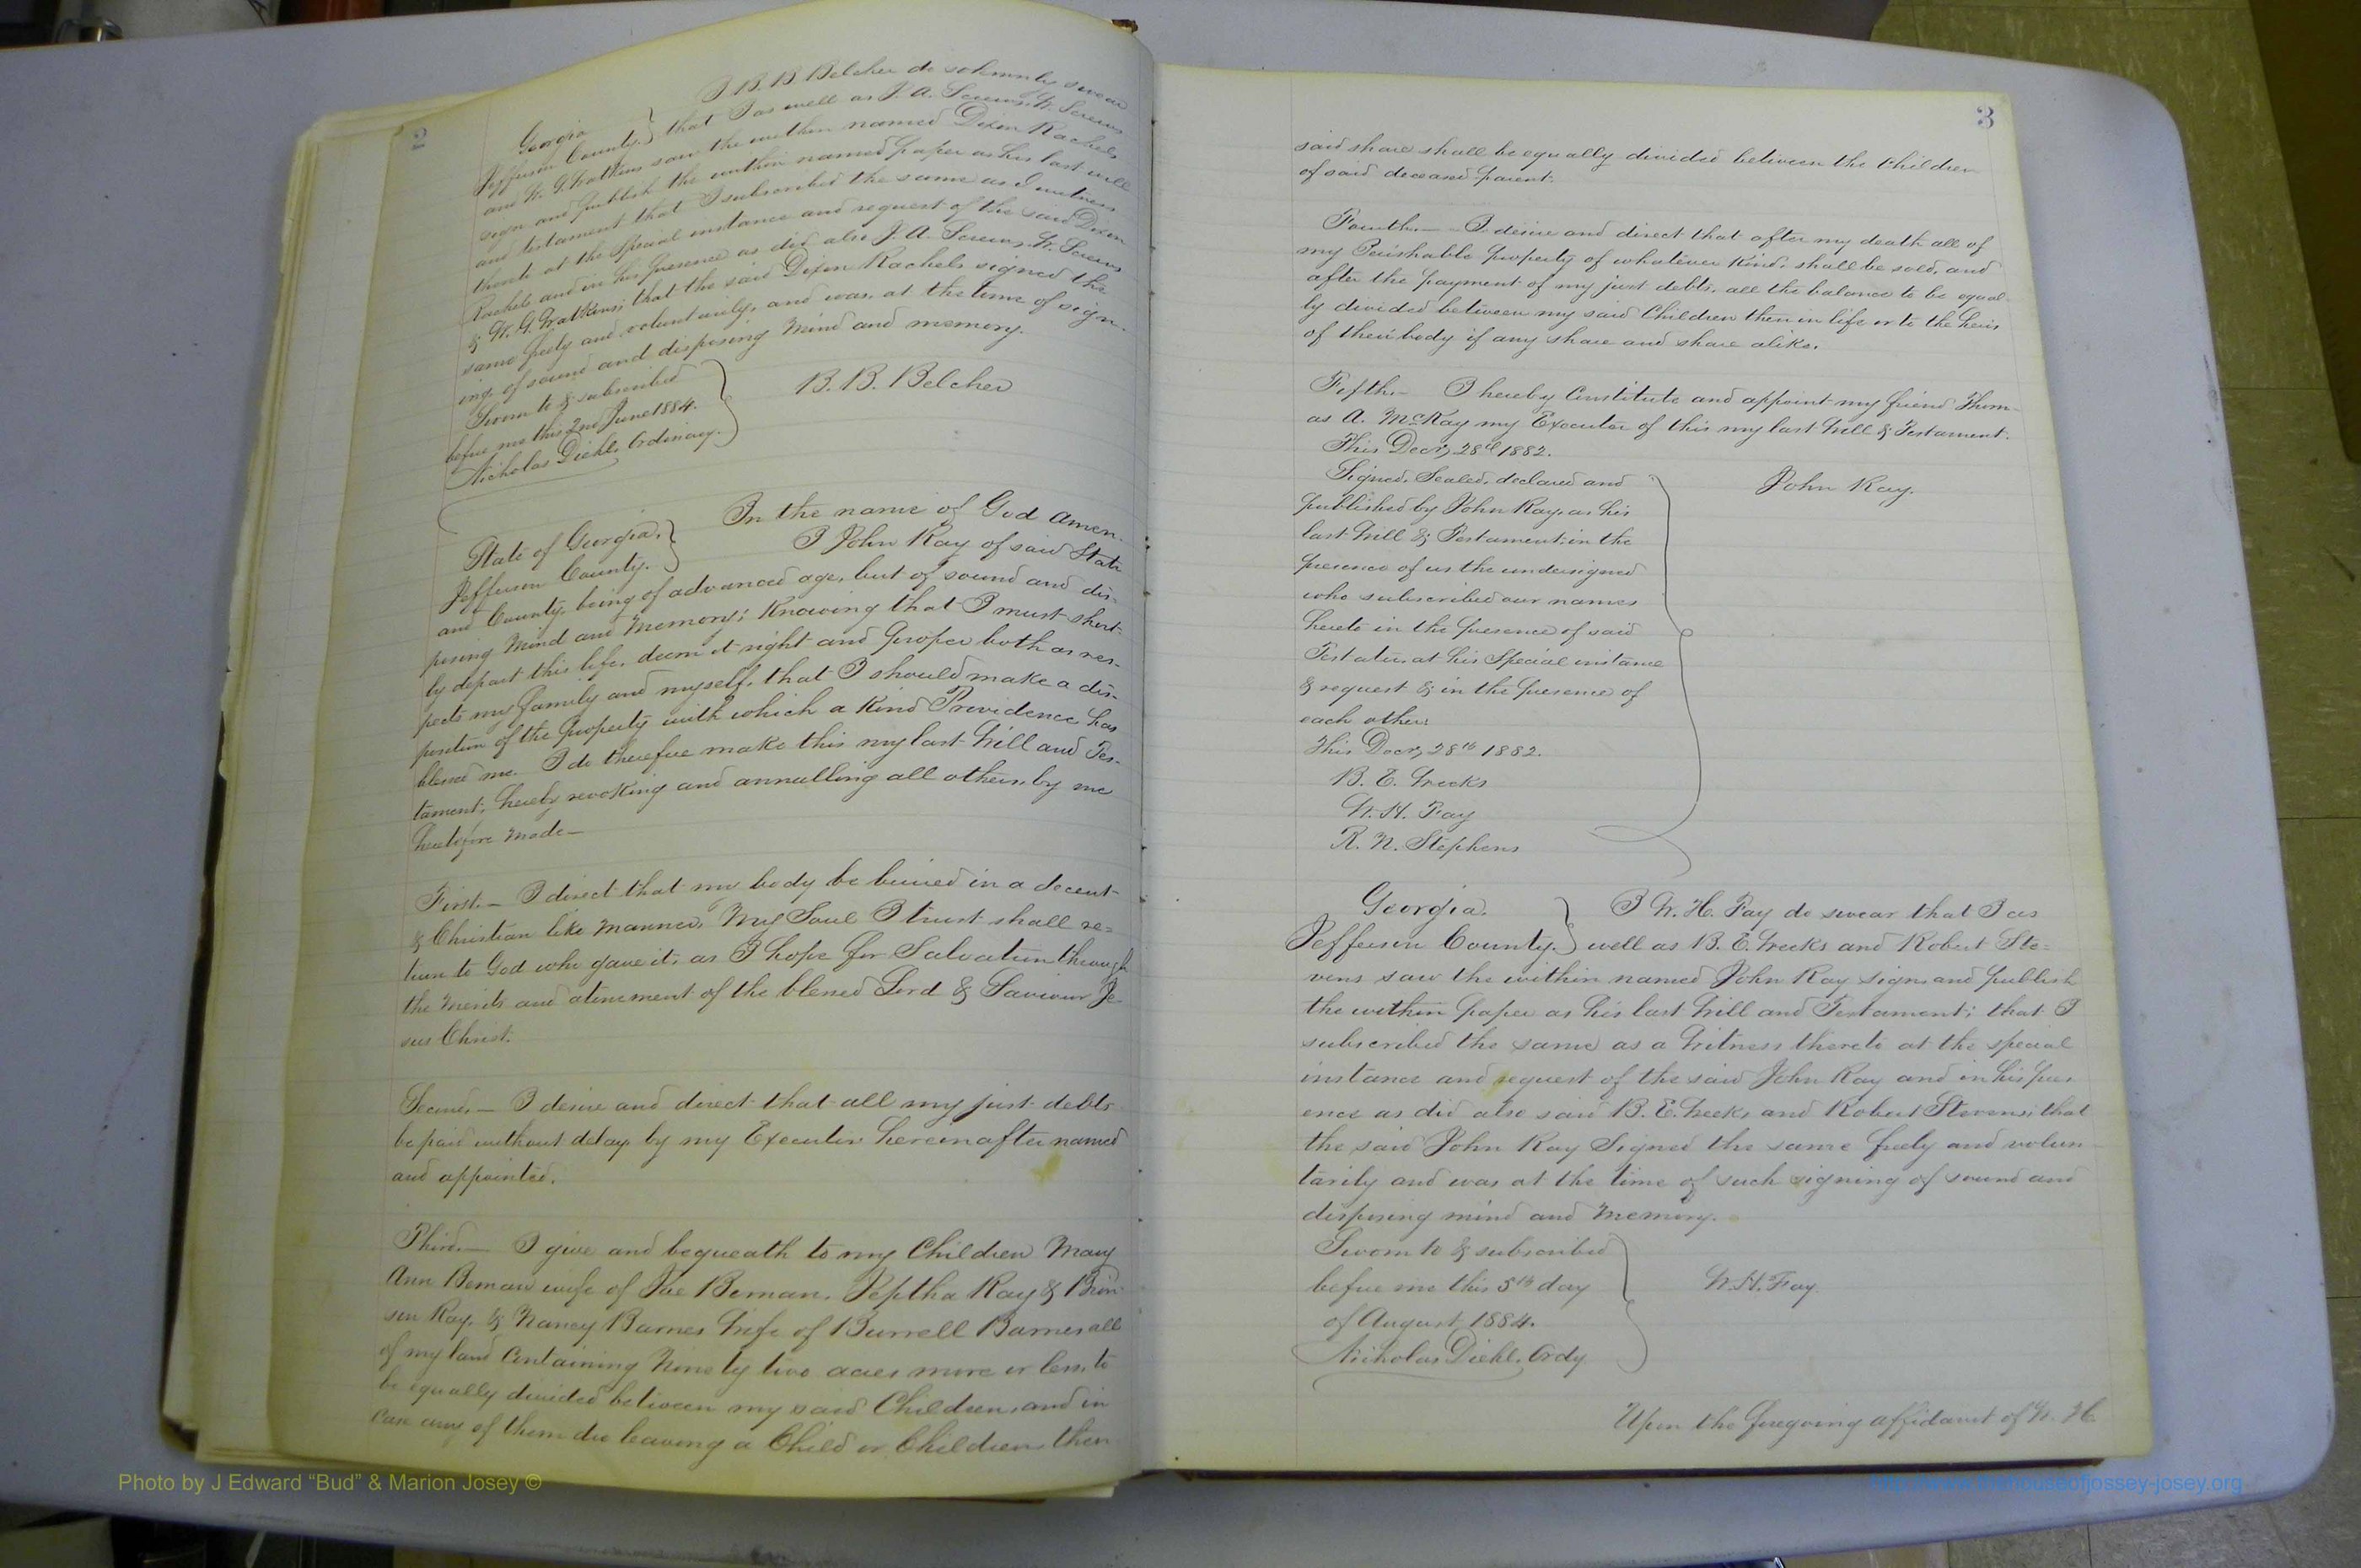 2
I B. B. Belcher do solemnly swear
Georgia
Jefferson County. } that I as well as J. A. Screws, W. Screws
and W. G. Watkins saw the within named Dixon Rachels
sign and publish the within named paper as his last will
and testament that I subscribed the same as a witness
thereto at the special instance and request of the said Dixon
Rachels and in his presence as did also J. A. Screws, W. Screws
& W. G. Watkins; that the said Dixon Rachels signed the
same freely and voluntarily, and was, at the time of sign-
ing, of sound and disposing Mind and memory.
Sworn to & subscribed
before me this 2nd June 1884.
B. B. Belcher
Nicholas Diehl, Ordinary.
In the name of God Amen.
State of Georgia,
Jefferson County. }
I John Ray of said State
and County, being of advanced age, but of sound and dis-
posing Mind and Memory; Knowing that I must short-
ly depart this life, deem it right and proper both as res-
pects my family and myself, that I should make a dis-
position of the property with which a Kind Providence has
blessed me. I do therefore make this my last Will and Tes-
tament; hereby revoking and annulling all others, by me
heretofore made—
First.— I direct that my body be buried in a decent
& Christian like manner, My Soul I trust shall re-
turn to God who gave it, as I hope for Salvation through
the Merits and atonement of the blessed Lord & Saviour Je-
sus Christ.
Second.— I desire and direct that all my just debts
be paid without delay by my Executor hereinafter named
and appointed.
Third.— I give and bequeath to my Children Mary
Ann Beman wife of Joe Beman, Jeptha Ray & Brin-
son Ray, & Nancy Barnes Wife of Burrell Barnes all
of my land Containing Ninety two acres more or less, to
be equally divided between my said Children, and in
case any of them die leaving a Child or Children, then
3
said share shall be equally divided between the children
of said deceased parent.
Fourth.— I desire and direct that after my death all of
my Perishable property of whatever Kind, shall be sold, and
after the payment of my just debts, all the balance to be equal-
ly divided between my said Children then in life or to the heirs
of their body if any share and share alike.
Fifth.— I hereby Constitute and appoint my friend Thom-
as A. McKay my Executor of this my last Will & Testament.
This Decr, 28th 1882.
Signed, Sealed, declared and
John Ray.
published by John Ray, as his
last Will & Testament, in the
presence of us the undersigned
who subscribed our names
hereto in the presence of said
Testator, at his Special instance
& request & in the presence of
each other.
This Decr, 28th 1882.
B. E. Weeks
W. H. Fay
R. N. Stephens
Georgia.
Jefferson County. }
I W. H. Fay do swear that I as
well as B. E. Weeks and Robert Ste-
vens saw the within named John Ray sign, and publish
the within paper as his last Will and Testament; that I
subscribed the same as a Witness thereto at the special
instance and request of the said John Ray and in his pres-
ence as did also said B. E. Weeks and Robert Stevens; that
the said John Ray Signed the same freely and volun-
tarily and was at the time of such signing of sound and
disposing mind and Memory.
Sworn to & subscribed
before me this 5th day
W. H. Fay
of August, 1884.
Nicholas Diehl, Ordy.
Upon the foregoing affidavit of W. H.
Photo by J Edward “Bud” & Marion Josey ©
http://www.thehouseofjossey-josey.org